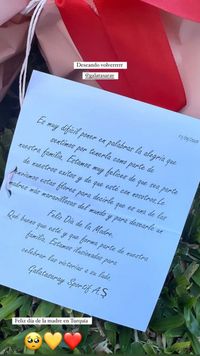 Deseando volverrrrr
@galatasaray
Es muy difícil poner en palabras la alegría que
sentimos por tenerla como parte de
nuestra familia. Estamos muy felices de que sea parte
de nuestros exitos y de que esté con nosotros. Le
enviamos estas flores para decirle que es una de las
madres más maravillosas del mundo y para desearle un
Feliz Día de la Madre.
Qué bueno que esté y que forme parte de nuestra
familia. Estamos ilusionados para
celebrar las victorias a su lado.
Galatasaray Sportif A.Ş
Feliz día de la madre en Turquía
🥺💛❤️